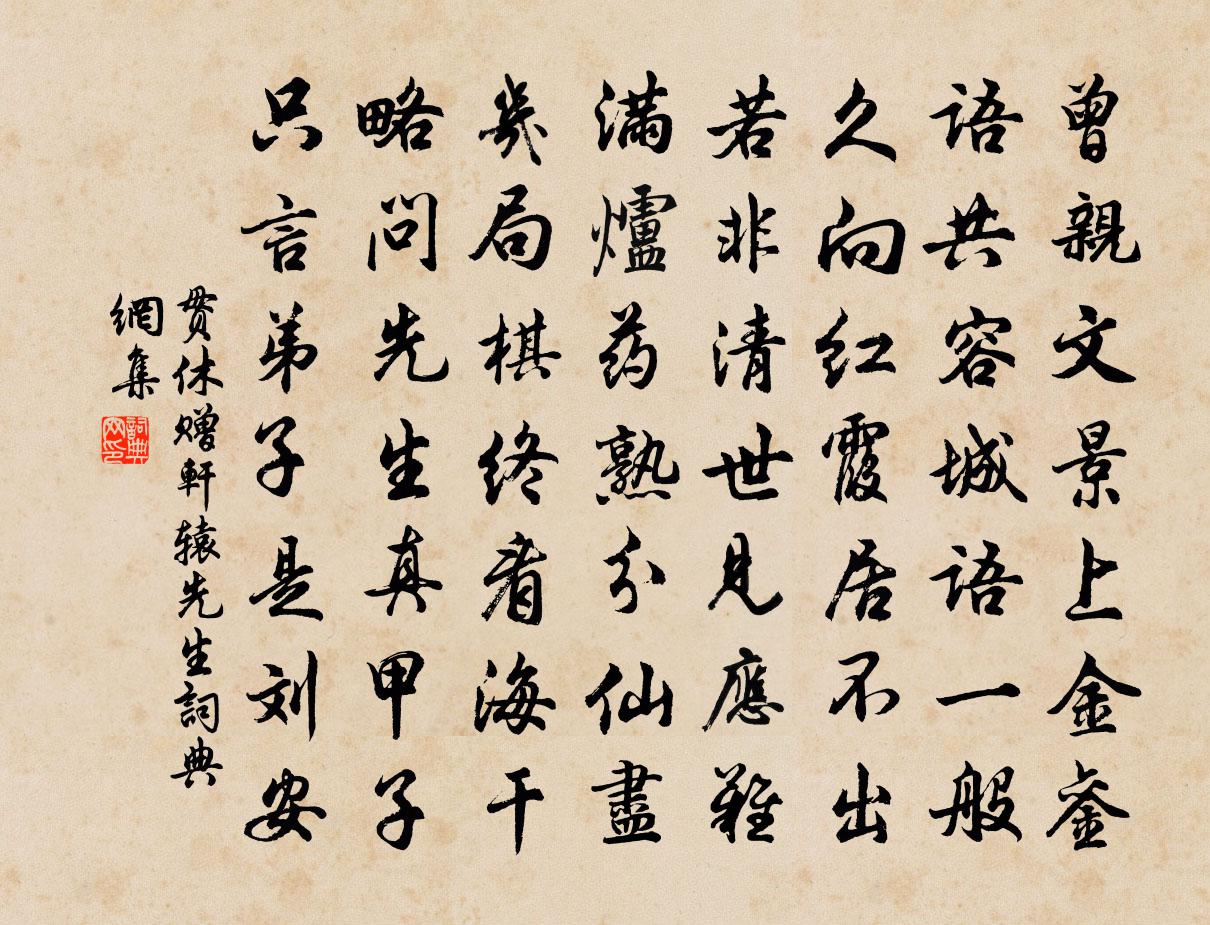 曾親文景上金鑾
語共容城語一般
久向红霞居不出
若非清世見應難
滿爐药熟分仙盡
幾局棋终看海干
略問先生真甲子
只言弟子是刘安
貫休赠軒辕先生詞典
網集
詞典
网印